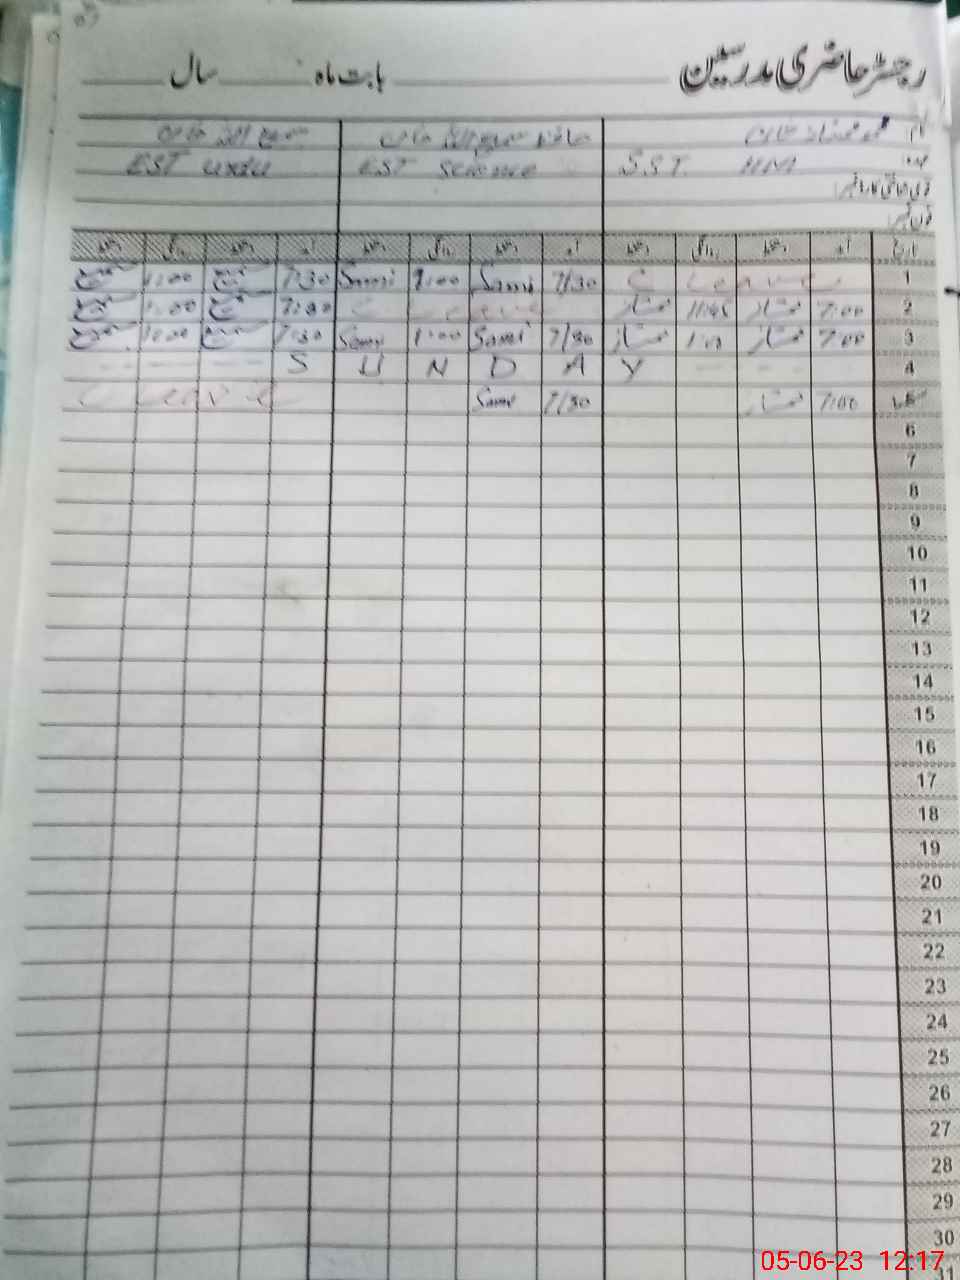 رجسٹر حاضری مدرسین بابت ماہ سال
نام محمد ممتاز خان حافظ سمیع اللہ خان سمیع اللہ خان
عہدہ S.S.T. HM EST Science EST Urdu
قومی شناختی کارڈ نمبر
فون نمبر
تاریخ آمد دستخط روانگی دستخط آمد دستخط روانگی دستخط آمد دستخط روانگی دستخط
1 C Leave 7/30 Sami 1:00 Sami 7:30 1:00
2 7:00 ممتاز 11:45 ممتاز C Leave 7:30 1:00
3 7:00 ممتاز ممتاز 7/30 Sami 1:00 Sami 7:30 1:00
4 S U N D A Y
7:00 ممتاز 7/30 Sami C Leave
6
7
8
9
10
11
12
13
14
15
16
17
18
19
20
21
22
23
24
25
26
27
28
29
30
31
05-06-23 12:17